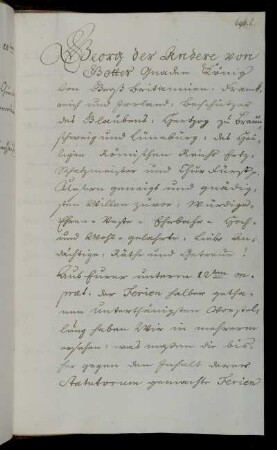 Georg der Andere von
Gottes Gnaden König
von Groß Britannien, Franck-
reich und Irrland, Beschützer
des Glaubens, Hertzog zu Braun-
schweig und Lüneburg, des Heil-
igen Römischen Reichs Ertz-
Schatzmeister und Churfürst p.
Unsern geneigt und gnädig-
sten Willen zuvor, Würdige,
Ehren-Veste, Ehrbahre, Hoch-
und Wohl-gelahrte, liebe An-
dächtige, Räthe und Getreue!
Aus Eurer unterm 12ten
der Ferien halber getha-
nen Unterthänigsten Vorstel-
lung haben Wir in mehrerm
ersehen, was maßen die bis-
her gegen den Inhalt derer
Statutorum gemachte Ferien